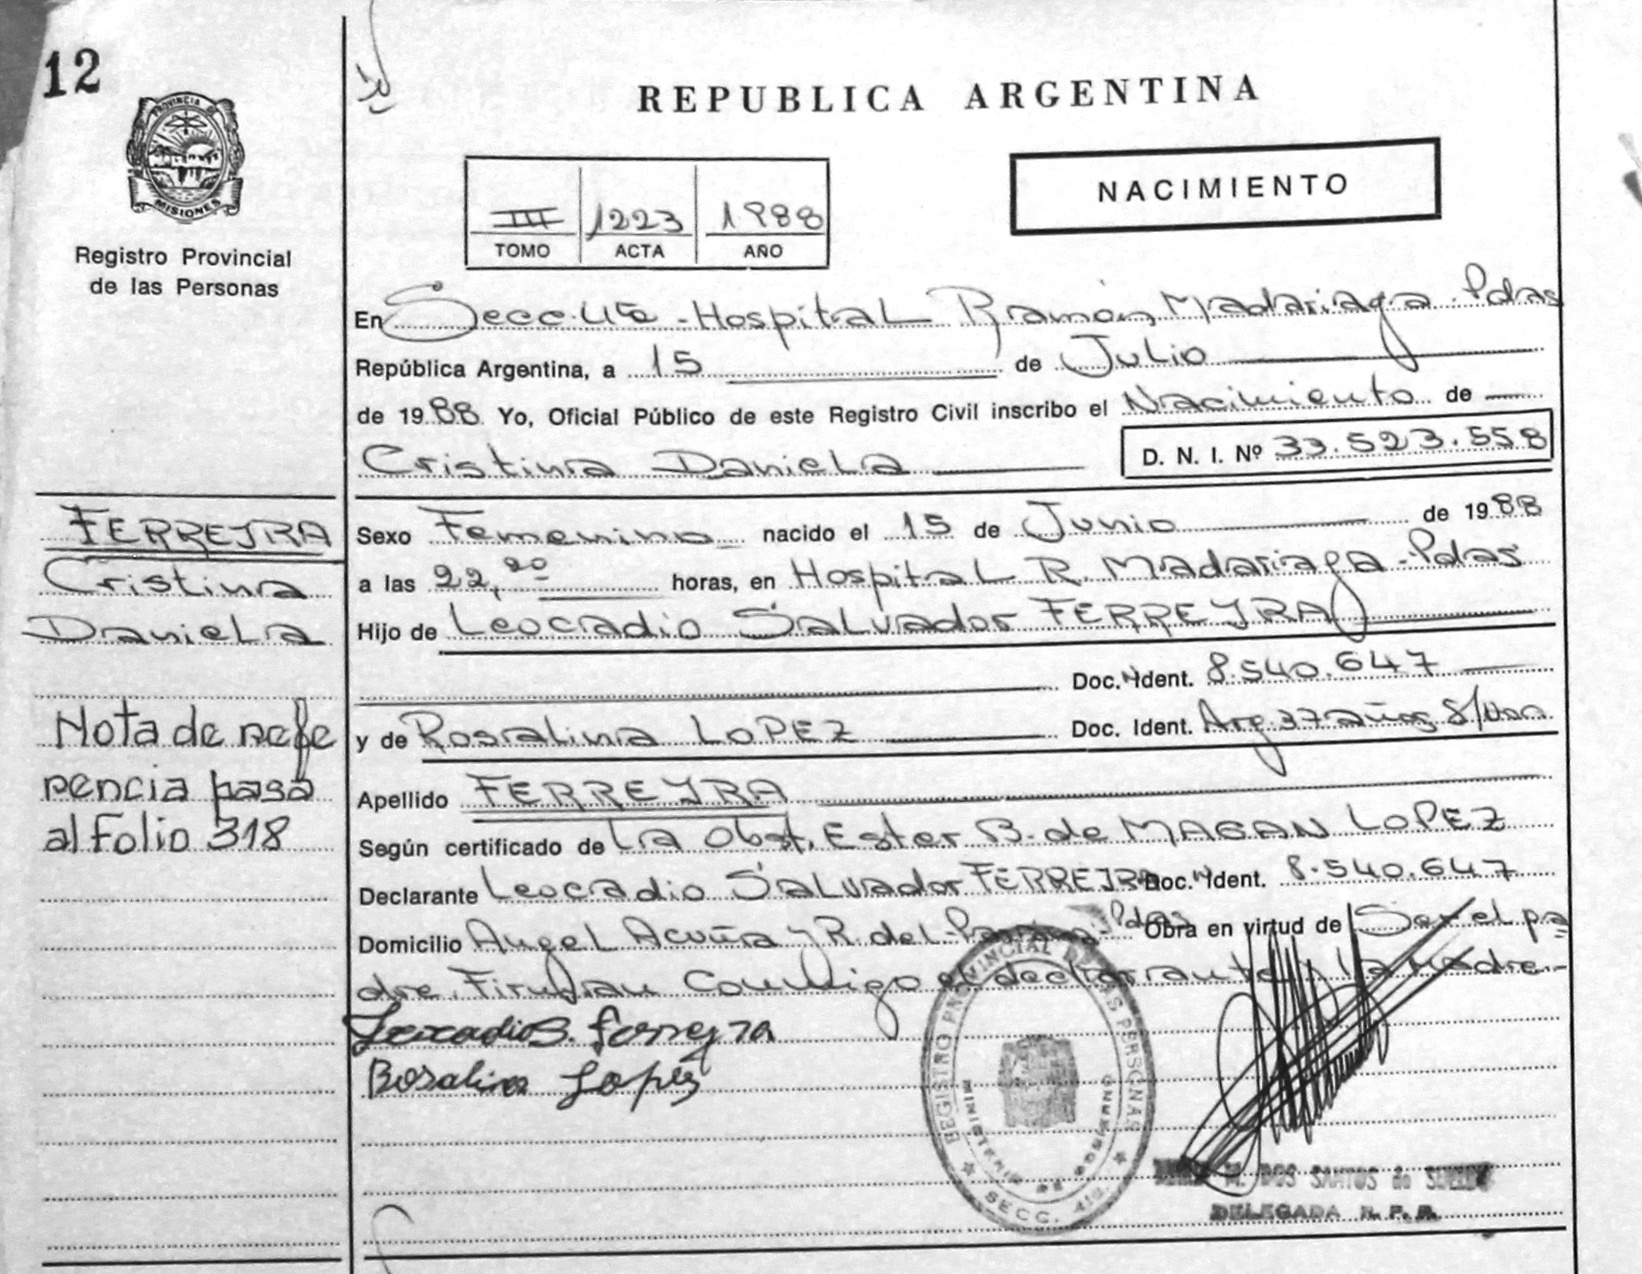 12
PROVINCIA DE
MISIONES
Registro Provincial
de las Personas
REPUBLICA ARGENTINA
NACIMIENTO
III 1223 1988
TOMO ACTA AÑO
En Secc. 4ta - Hospital Ramón Madariaga - Pdas
República Argentina, a 15 de Julio
de 1988 Yo, Oficial Público de este Registro Civil inscribo el Nacimiento de
Cristina Daniela D. N. I. Nº 33.523.558
FERREYRA
Cristina
Daniela
Nota de refe
rencia pasa
al Folio 318
Sexo Femenino nacido el 15 de Junio de 1988
a las 22,20 horas, en Hospital R. Madariaga - Pdas
Hijo de Leocadio Salvador FERREYRA
Doc. Ident. 8.540.647
y de Rosalina LOPEZ Doc. Ident. Arg. 37 años S/Doc
Apellido FERREYRA
Según certificado de la Obst. Ester B. de MAGAN LOPEZ
Declarante Leocadio Salvador FERREYRA Doc. Ident. 8.540.647
Domicilio Angel Acuña y R. del Parana - Pdas Obra en virtud de Ser el pa
dre. Firman Conmigo el declarante y la Madre.-
Leocadio S. Ferreyra
Rosalina Lopez
REGISTRO PROVINCIAL DE LAS PERSONAS
MINISTERIO DE GOBIERNO
SECC. 4ta.
M. DOS SANTOS de
DELEGADA R. P. P.